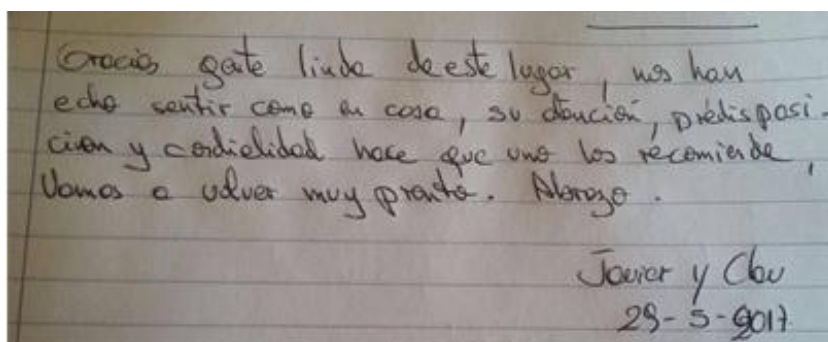 Gracias gente linda de este lugar, nos han
echo sentir como en casa, su atención, predisposi-
cion y cordialidad hace que uno los recomiende,
Vamos a volver muy pronto. Abrazo.
Javier y Clau
29-5-2017